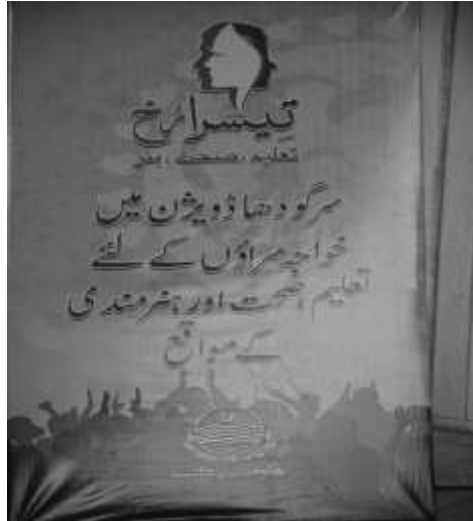 تیسرا رُخ
تعلیم، صحت، ہنر
سرگودھا ڈویژن میں
خواجہ سراؤں کے لئے
تعلیم، صحت اور ہنرمندی
کے مواقع